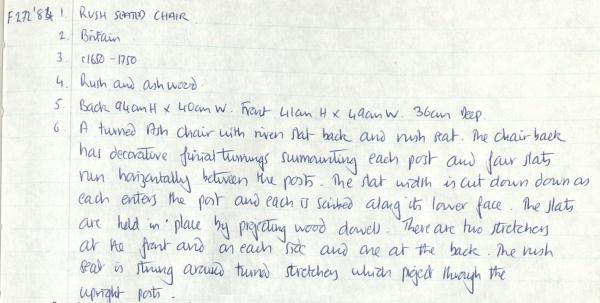 F272'84 1. RUSH SEATED CHAIR
2. Britain
3. c1650-1750
4. Rush and ashwood
5. Back 94cm H x 40cm W. Front 41cm H x 49cm W. 36cm Deep.
6. A turned Ash chair with riven slat back and rush seat. The chair back
has decorative finial turnings surmounting each post and four slats
run horizontally between the posts. The slat width is cut down down as
each enters the post and each is scribed along its lower face. The slats
are held in place by projecting wood dowels. There are two stretchers
at the front and on each side and one at the back. The rush
seat is strung around turned stretchers which project through the
upright posts.